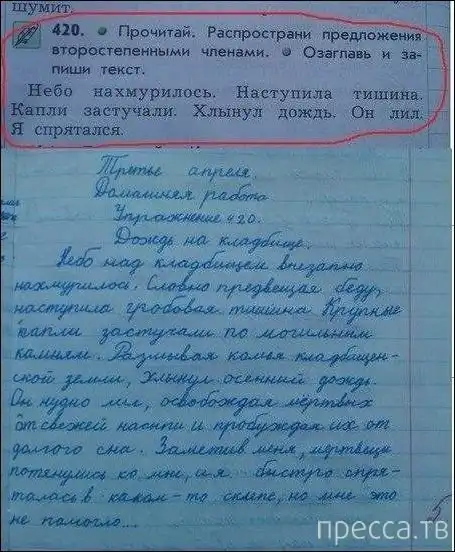 шумит.
420. • Прочитай. Распространи предложения
второстепенными членами. • Озаглавь и за-
пиши текст.
Небо нахмурилось. Наступила тишина.
Капли застучали. Хлынул дождь. Он лил.
Я спрятался.
Третье апреля.
Домашняя работа
Упражнение 420.
Дождь на кладбище.
Небо над кладбищем внезапно
нахмурилось. Словно предвещая беду,
наступила гробовая тишина Крупные
капли застучали по могильным
камням. Размывая комья кладбищен-
ской земли, хлынул осенний дождь.
Он нудно лил, освобождая мёртвых
от свежей насыпи и пробуждая их от
долгого сна. Заметив меня, мертвецы
потянулись ко мне, и я быстро спря-
талась в каком-то склепе, но мне это
не помогло...
5
пресса.тв